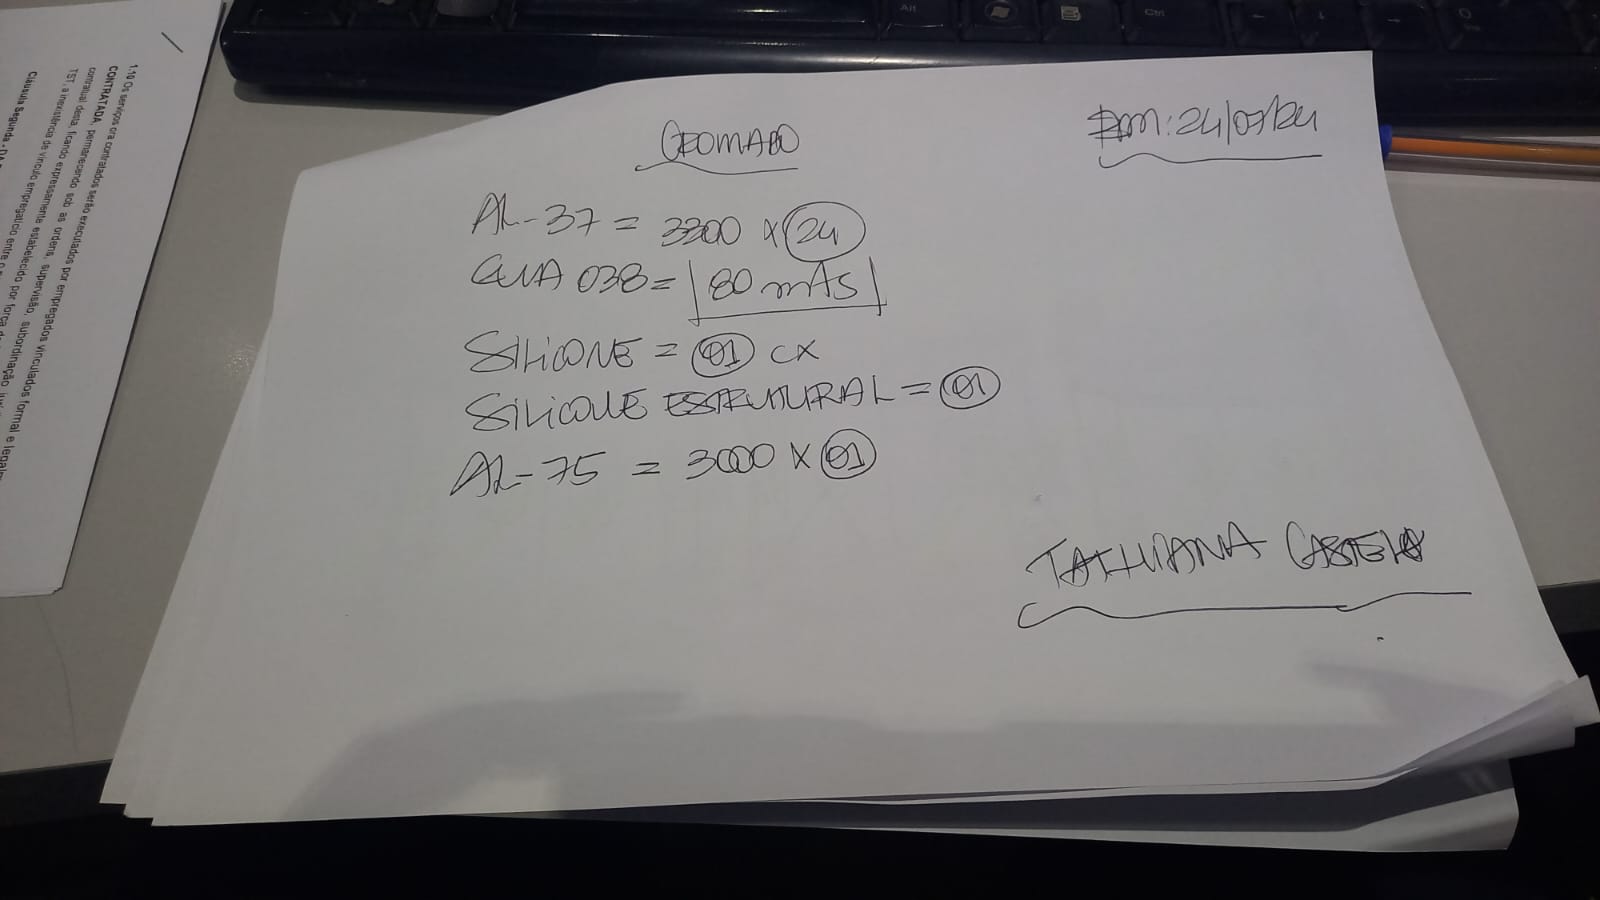 1.10 Os serviços ora contratados serão executados por empregados vinculados formal e legalm
CONTRATADA, permanecendo sob as ordens, supervisão, subordinação
contratual desta, ficando expressamente estabelecido por força
TST, a inexistência de vínculo empregatício entre o
Cláusula Segunda - DA
Alt
Ctrl
CROMADO
Em: 24/07/24
AL-37 = 3300 x 24
GUA 038 = 80 mts
SILICONE = 01 CX
SILICONE ESTRUTURAL = 01
AL-75 = 3000 x 01
TATHIANA CASTELO